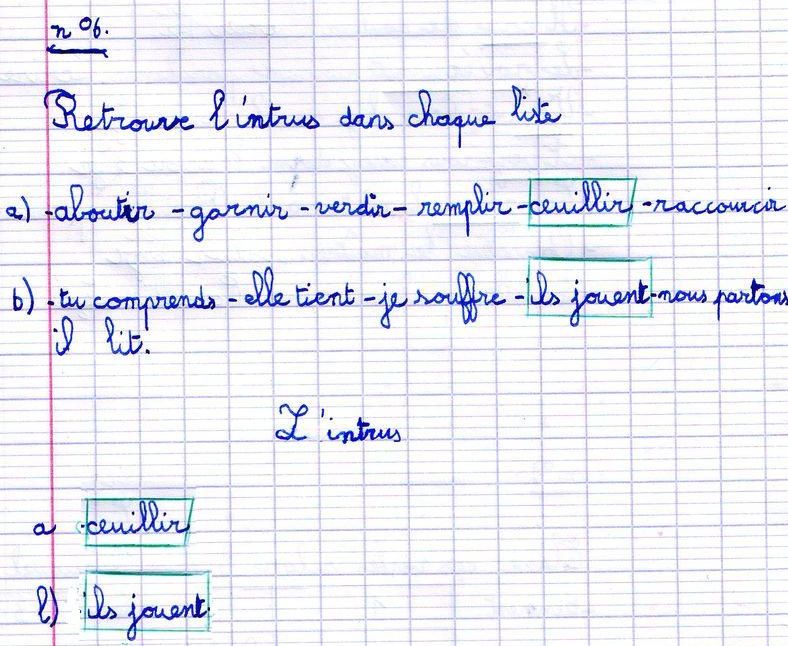 n°6.
Retrouve l'intrus dans chaque liste
a) - aboutir - garnir - verdir - remplir - ceuillir - raccourcir
b) - tu comprends - elle tient - je souffre - ils jouent - nous partons
il lit.
L'intrus
a ceuillir
b) ils jouent